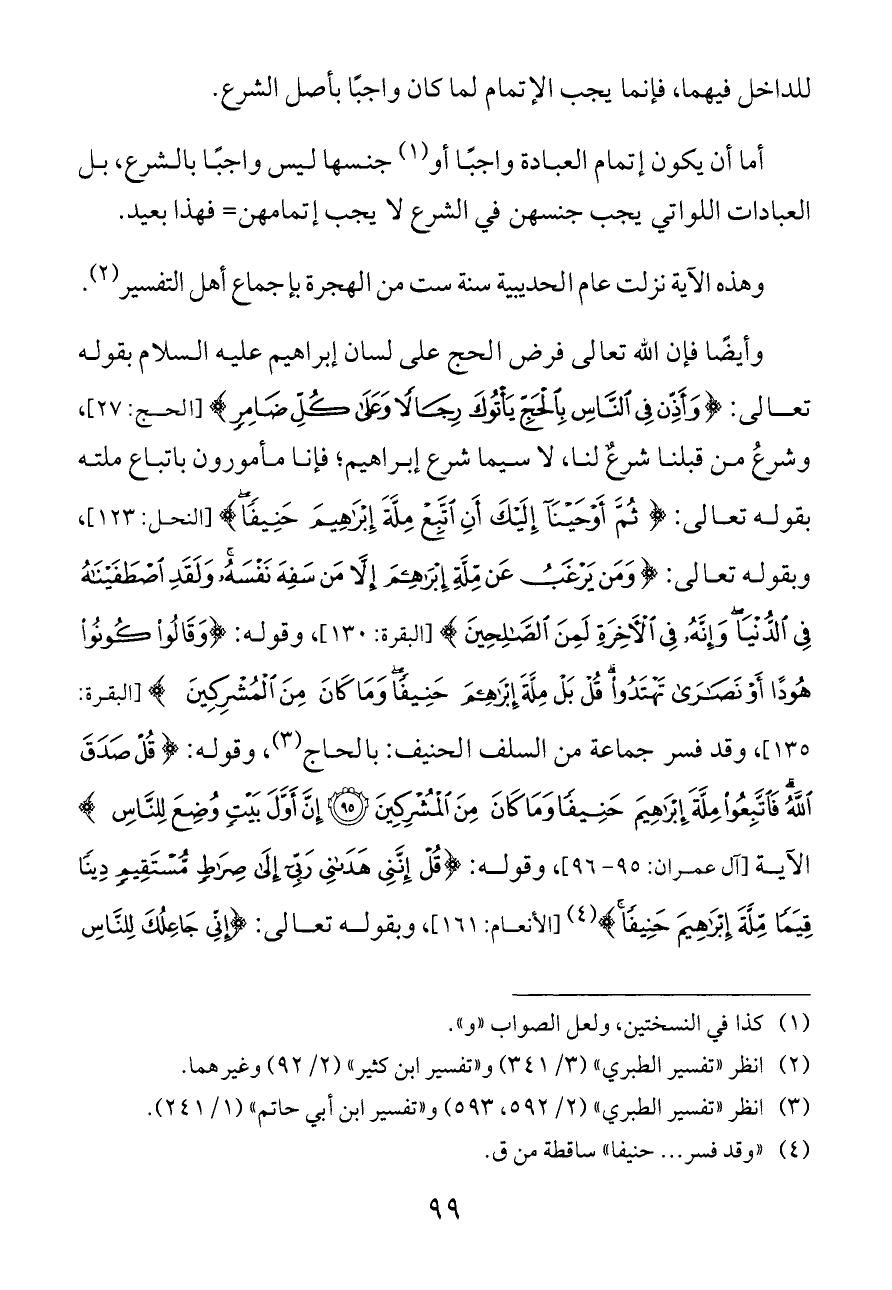 للداخل فيهما، فإنما يجب الإتمام لما كان واجبًا بأصل الشرع.
أما أن يكون إتمام العبادة واجبًا أو(١) جنسها ليس واجبًا بالشرع، بل
العبادات اللواتي يجب جنسهن في الشرع لا يجب إتمامهن= فهذا بعيد.
وهذه الآية نزلت عام الحديبية سنة ست من الهجرة بإجماع أهل التفسير(٢).
وأيضًا فإن الله تعالى فرض الحج على لسان إبراهيم عليه السلام بقوله
تعالى: ﴿وَأَذِّن فِي ٱلنَّاسِ بِٱلْحَجِّ يَأْتُوكَ رِجَالًا وَعَلَىٰ كُلِّ ضَامِرٍ﴾ [الحج: ٢٧]،
وشرعُ من قبلنا شرعٌ لنا، لا سيما شرع إبراهيم؛ فإنا مأمورون باتباع ملته
بقوله تعالى: ﴿ثُمَّ أَوْحَيْنَآ إِلَيْكَ أَنِ ٱتَّبِعْ مِلَّةَ إِبْرَٰهِيمَ حَنِيفًاۖ﴾ [النحل: ١٢٣]،
وبقوله تعالى: ﴿وَمَن يَرْغَبُ عَن مِّلَّةِ إِبْرَٰهِـۧمَ إِلَّا مَن سَفِهَ نَفْسَهُۥۚ وَلَقَدِ ٱصْطَفَيْنَٰهُ
فِي ٱلدُّنْيَاۖ وَإِنَّهُۥ فِي ٱلْآخِرَةِ لَمِنَ ٱلصَّٰلِحِينَ﴾ [البقرة: ١٣٠]، وقوله: ﴿وَقَالُوا۟ كُونُوا۟
هُودًا أَوْ نَصَٰرَىٰ تَهْتَدُوا۟ۗ قُلْ بَلْ مِلَّةَ إِبْرَٰهِـۧمَ حَنِيفًاۖ وَمَا كَانَ مِنَ ٱلْمُشْرِكِينَ﴾ [البقرة:
١٣٥]، وقد فسر جماعة من السلف الحنيف: بالحاج(٣)، وقوله: ﴿قُلْ صَدَقَ
ٱللَّهُۗ فَٱتَّبِعُوا۟ مِلَّةَ إِبْرَٰهِيمَ حَنِيفًا وَمَا كَانَ مِنَ ٱلْمُشْرِكِينَ ۝٩٥ إِنَّ أَوَّلَ بَيْتٍ وُضِعَ لِلنَّاسِ﴾
الآية [آل عمران: ٩٥-٩٦]، وقوله: ﴿قُلْ إِنَّنِي هَدَىٰنِي رَبِّيٓ إِلَىٰ صِرَٰطٍ مُّسْتَقِيمٍ دِينًا
قِيَمًا مِّلَّةَ إِبْرَٰهِيمَ حَنِيفًاۚ﴾(٤) [الأنعام: ١٦١]، وبقوله تعالى: ﴿إِنِّي جَاعِلُكَ لِلنَّاسِ
(١) كذا في النسختين، ولعل الصواب «و».
(٢) انظر «تفسير الطبري» (٣/ ٣٤١) و«تفسير ابن كثير» (٢/ ٩٢) وغيرهما.
(٣) انظر «تفسير الطبري» (٢/ ٥٩٢، ٥٩٣) و«تفسير ابن أبي حاتم» (١/ ٢٤١).
(٤) «وقد فسر... حنيفا» ساقطة من ق.
٩٩